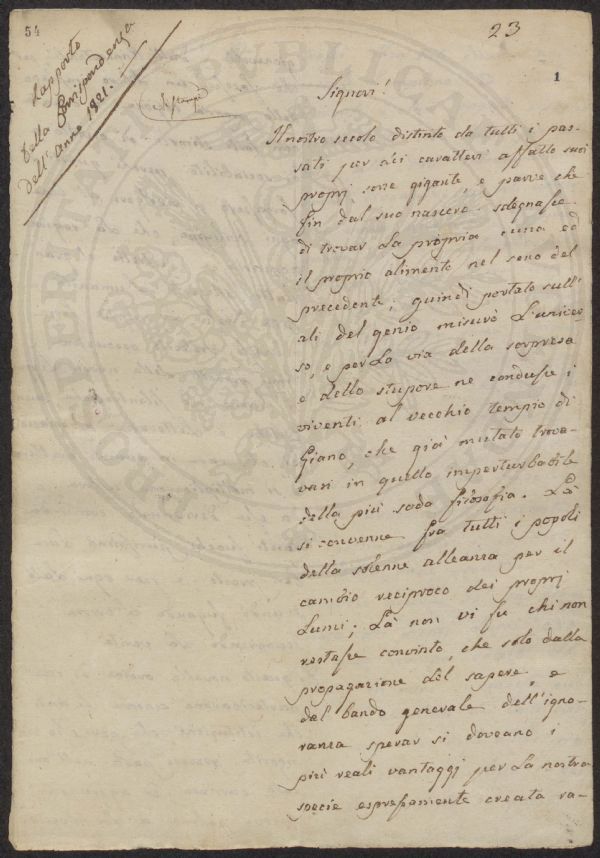 54
23
1
Rapporto
della Corrispondenza
dell'anno 1821.
Signori!
Il nostro secolo distinto da tutti i pas-
sati per dei caratteri affatto suoi
proprj, sorse gigante, e parve che
fin dal suo nascere sdegnasse
di trovar la propria cuna ed
il proprio alimento nel seno del
precedente; quindi portato sull'
ali del genio misurò l'univer-
so, e per la via della sorpresa
e dello stupore ne condusse i
viventi al vecchio tempio di
Giano, che già mutato trova-
vasi in quello imperturbabile
della più soda filosofia. Là
si convenne fra tutti i popoli
della solenne alleanza per il
cambio reciproco dei proprj
Lumi; Là non vi fu chi non
restasse convinto, che solo dalla
propagazione del sapere, e
dal bando generale dell'igno-
ranza sperar si doveano i
più reali vantaggi per la nostra
specie espressamente creata ra-